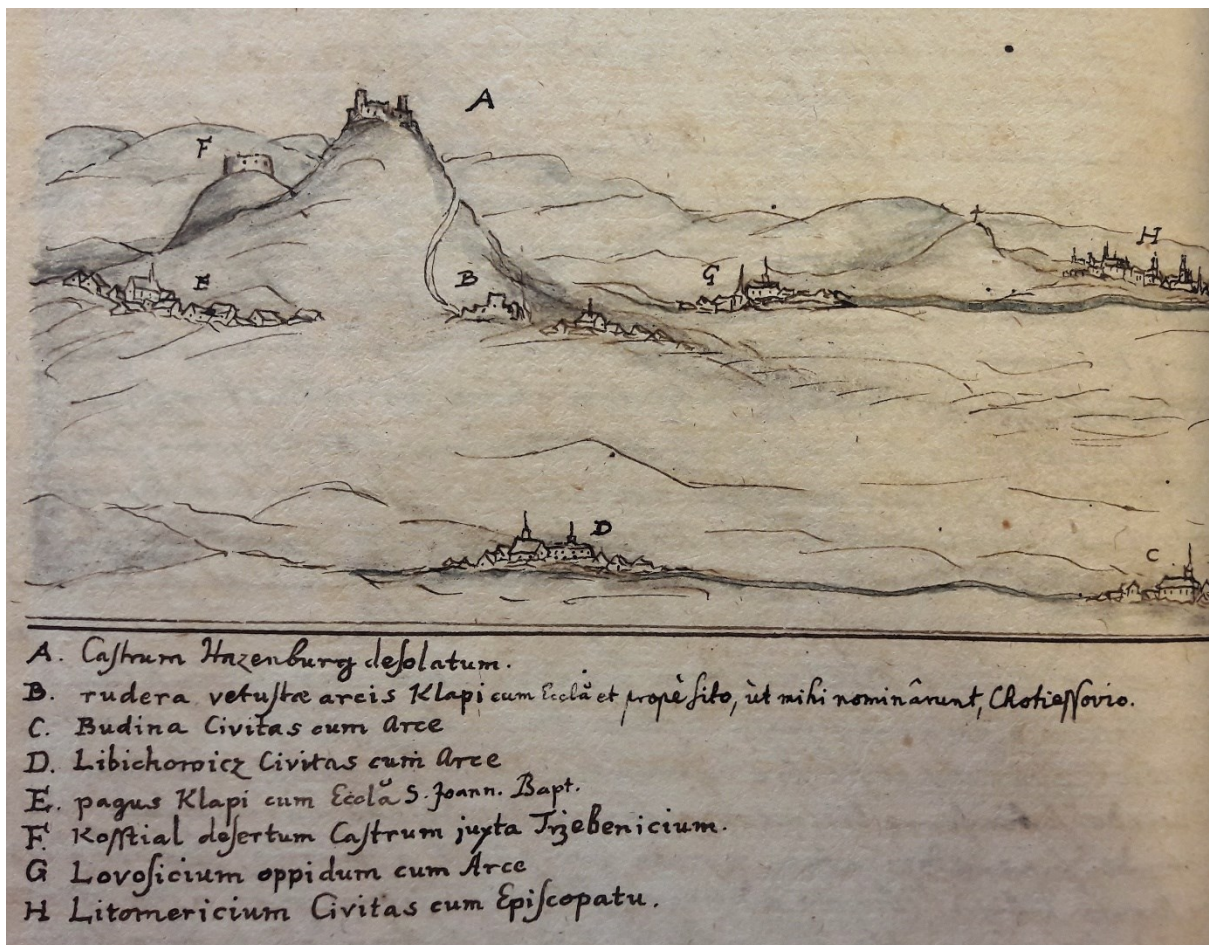 A
F
H
G
B
E
D
C
A. Caſtrum Hazenburg deſolatum.
B. rudera vetuſtæ arcis Klapi cum Eccla et propè ſito, ùt mihi nominârunt, Chotieſſovio.
C. Budina Civitas cum Arce
D. Libichowicz Civitas cum Arce
E. pagus Klapi cum Eccla S. Joann. Bapt.
F. Koſſtial deſertum Caſtrum juxta Trzebenicium.
G Lovoſicium oppidum cum Arce
H Litomericium Civitas cum Epiſcopatu.